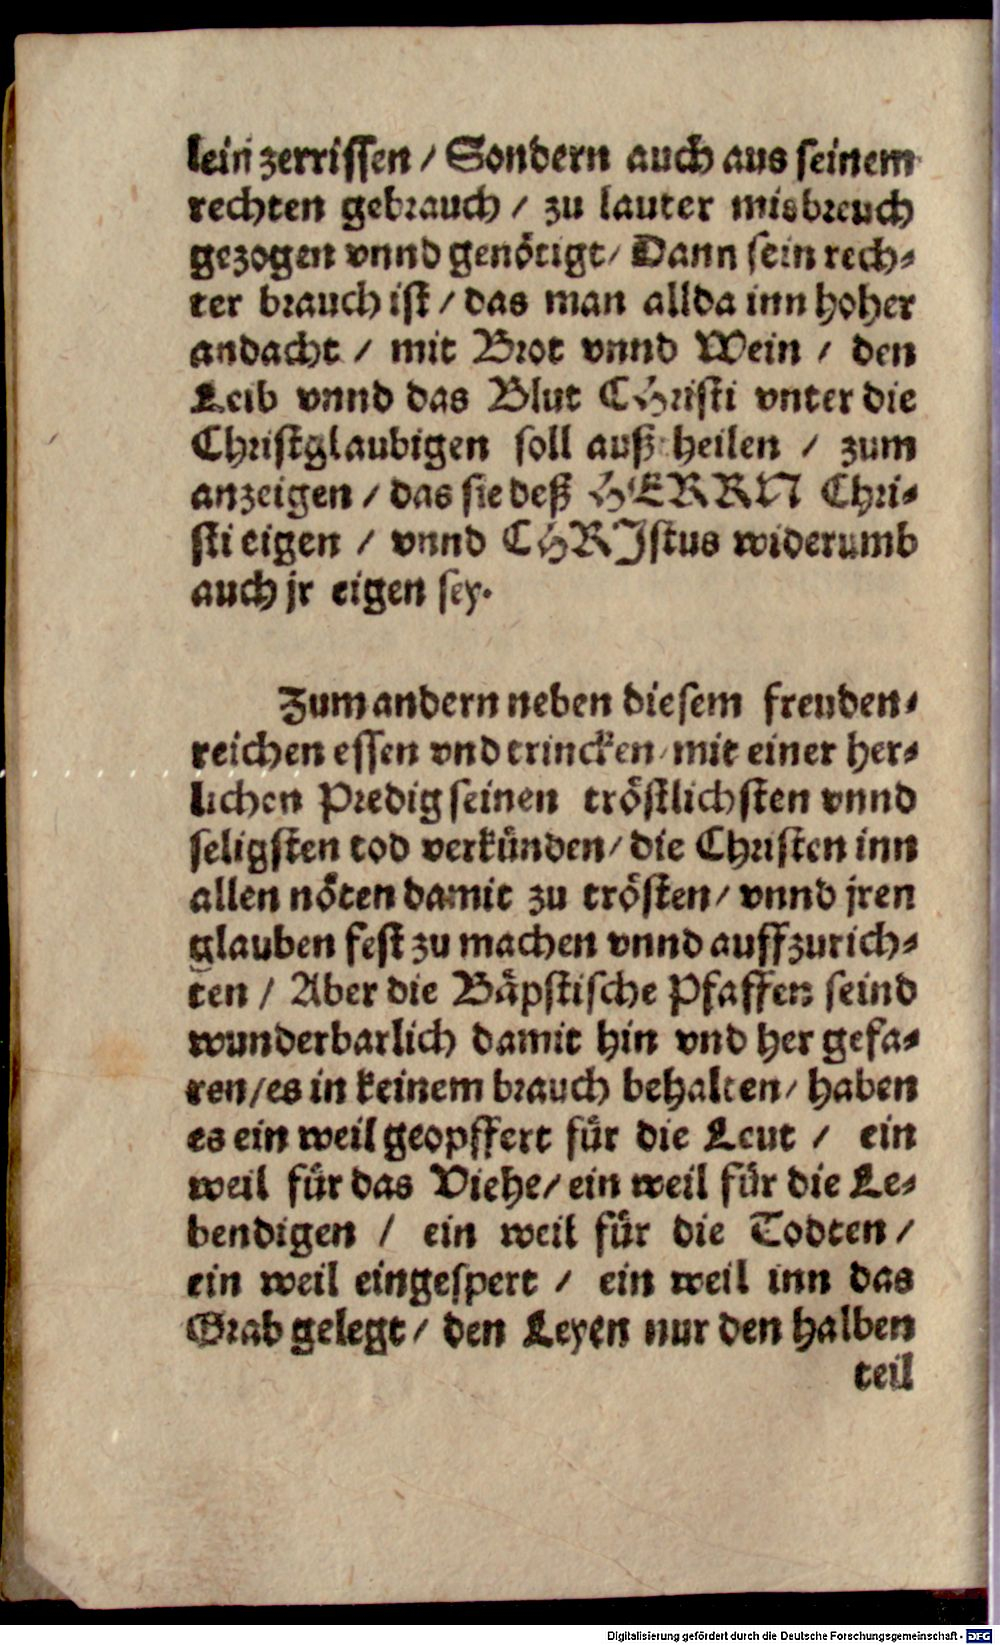 lein zerrissen / Sondern auch aus seinem
rechten gebrauch / zu lauter misbreuch
gezogen vnnd genötigt / Dann sein rech-
ter brauch ist / das man allda inn hoher
andacht / mit Brot vnnd Wein / den
Leib vnnd das Blut CHristi vnter die
Christglaubigen soll auß theilen / zum
anzeigen / das sie deß HERRN Chri-
sti eigen / vnnd CHRIstus widerumb
auch jr eigen sey.
Zum andern neben diesem freuden-
reichen essen vnd trincken / mit einer her-
lichen Predig seinen tröstlichsten vnnd
seligsten tod verkünden / die Christen inn
allen nöten damit zu trösten / vnnd jren
glauben fest zu machen vnnd auffzurich-
ten / Aber die Bäpstische Pfaffen seind
wunderbarlich damit hin vnd her gefa-
ren / es in keinem brauch behalten / haben
es ein weil geopffert für die Leut / ein
weil für das Viehe / ein weil für die Le-
bendigen / ein weil für die Todten /
ein weil eingespert / ein weil inn das
Grab gelegt / den Leyen nur den halben
teil
Digitalisierung gefördert durch die Deutsche Forschungsgemeinschaft - DFG